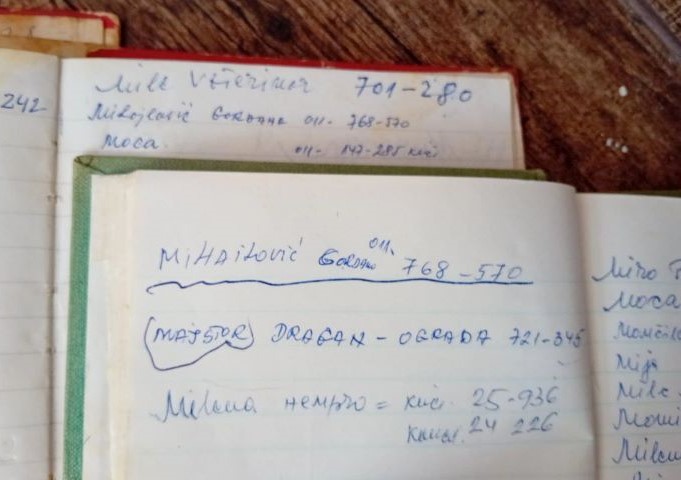 242
Mile Veterinar 701-280
Mihajlović Gordana 011- 768-570
Moca 011- 147-285 kući
MiHAiLović GORDANA 011. 768-570
MAJSTOR DRAGAN - OGRADA 721-345
Milena НЕМРRO = kući. 25-936
kancel. 24 226
Miro
Moca
Momčilo
Mija
Mile
Momi
Milen